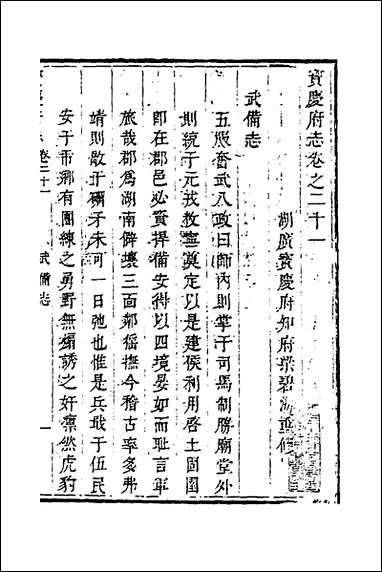 寳慶府志卷之二十一
湖廣寳慶府知府梁碧海重修
武備志
五服奮武八政曰師內則掌于司馬制勝廟堂外
則統于元戎救寧奠定以是建侯利用啓土固圉
卽在郡邑必資捍備安得以四境晏如而耻言軍
旅哉郡爲湖南僻壤三面鄰徭撫今稽古率多弗
靖則散于禰牙未可一日弛也惟是兵戢于伍民
安于市鄉有團練之勇野無煽誘之奸凛然虎豹
卷二十一
武備志
一